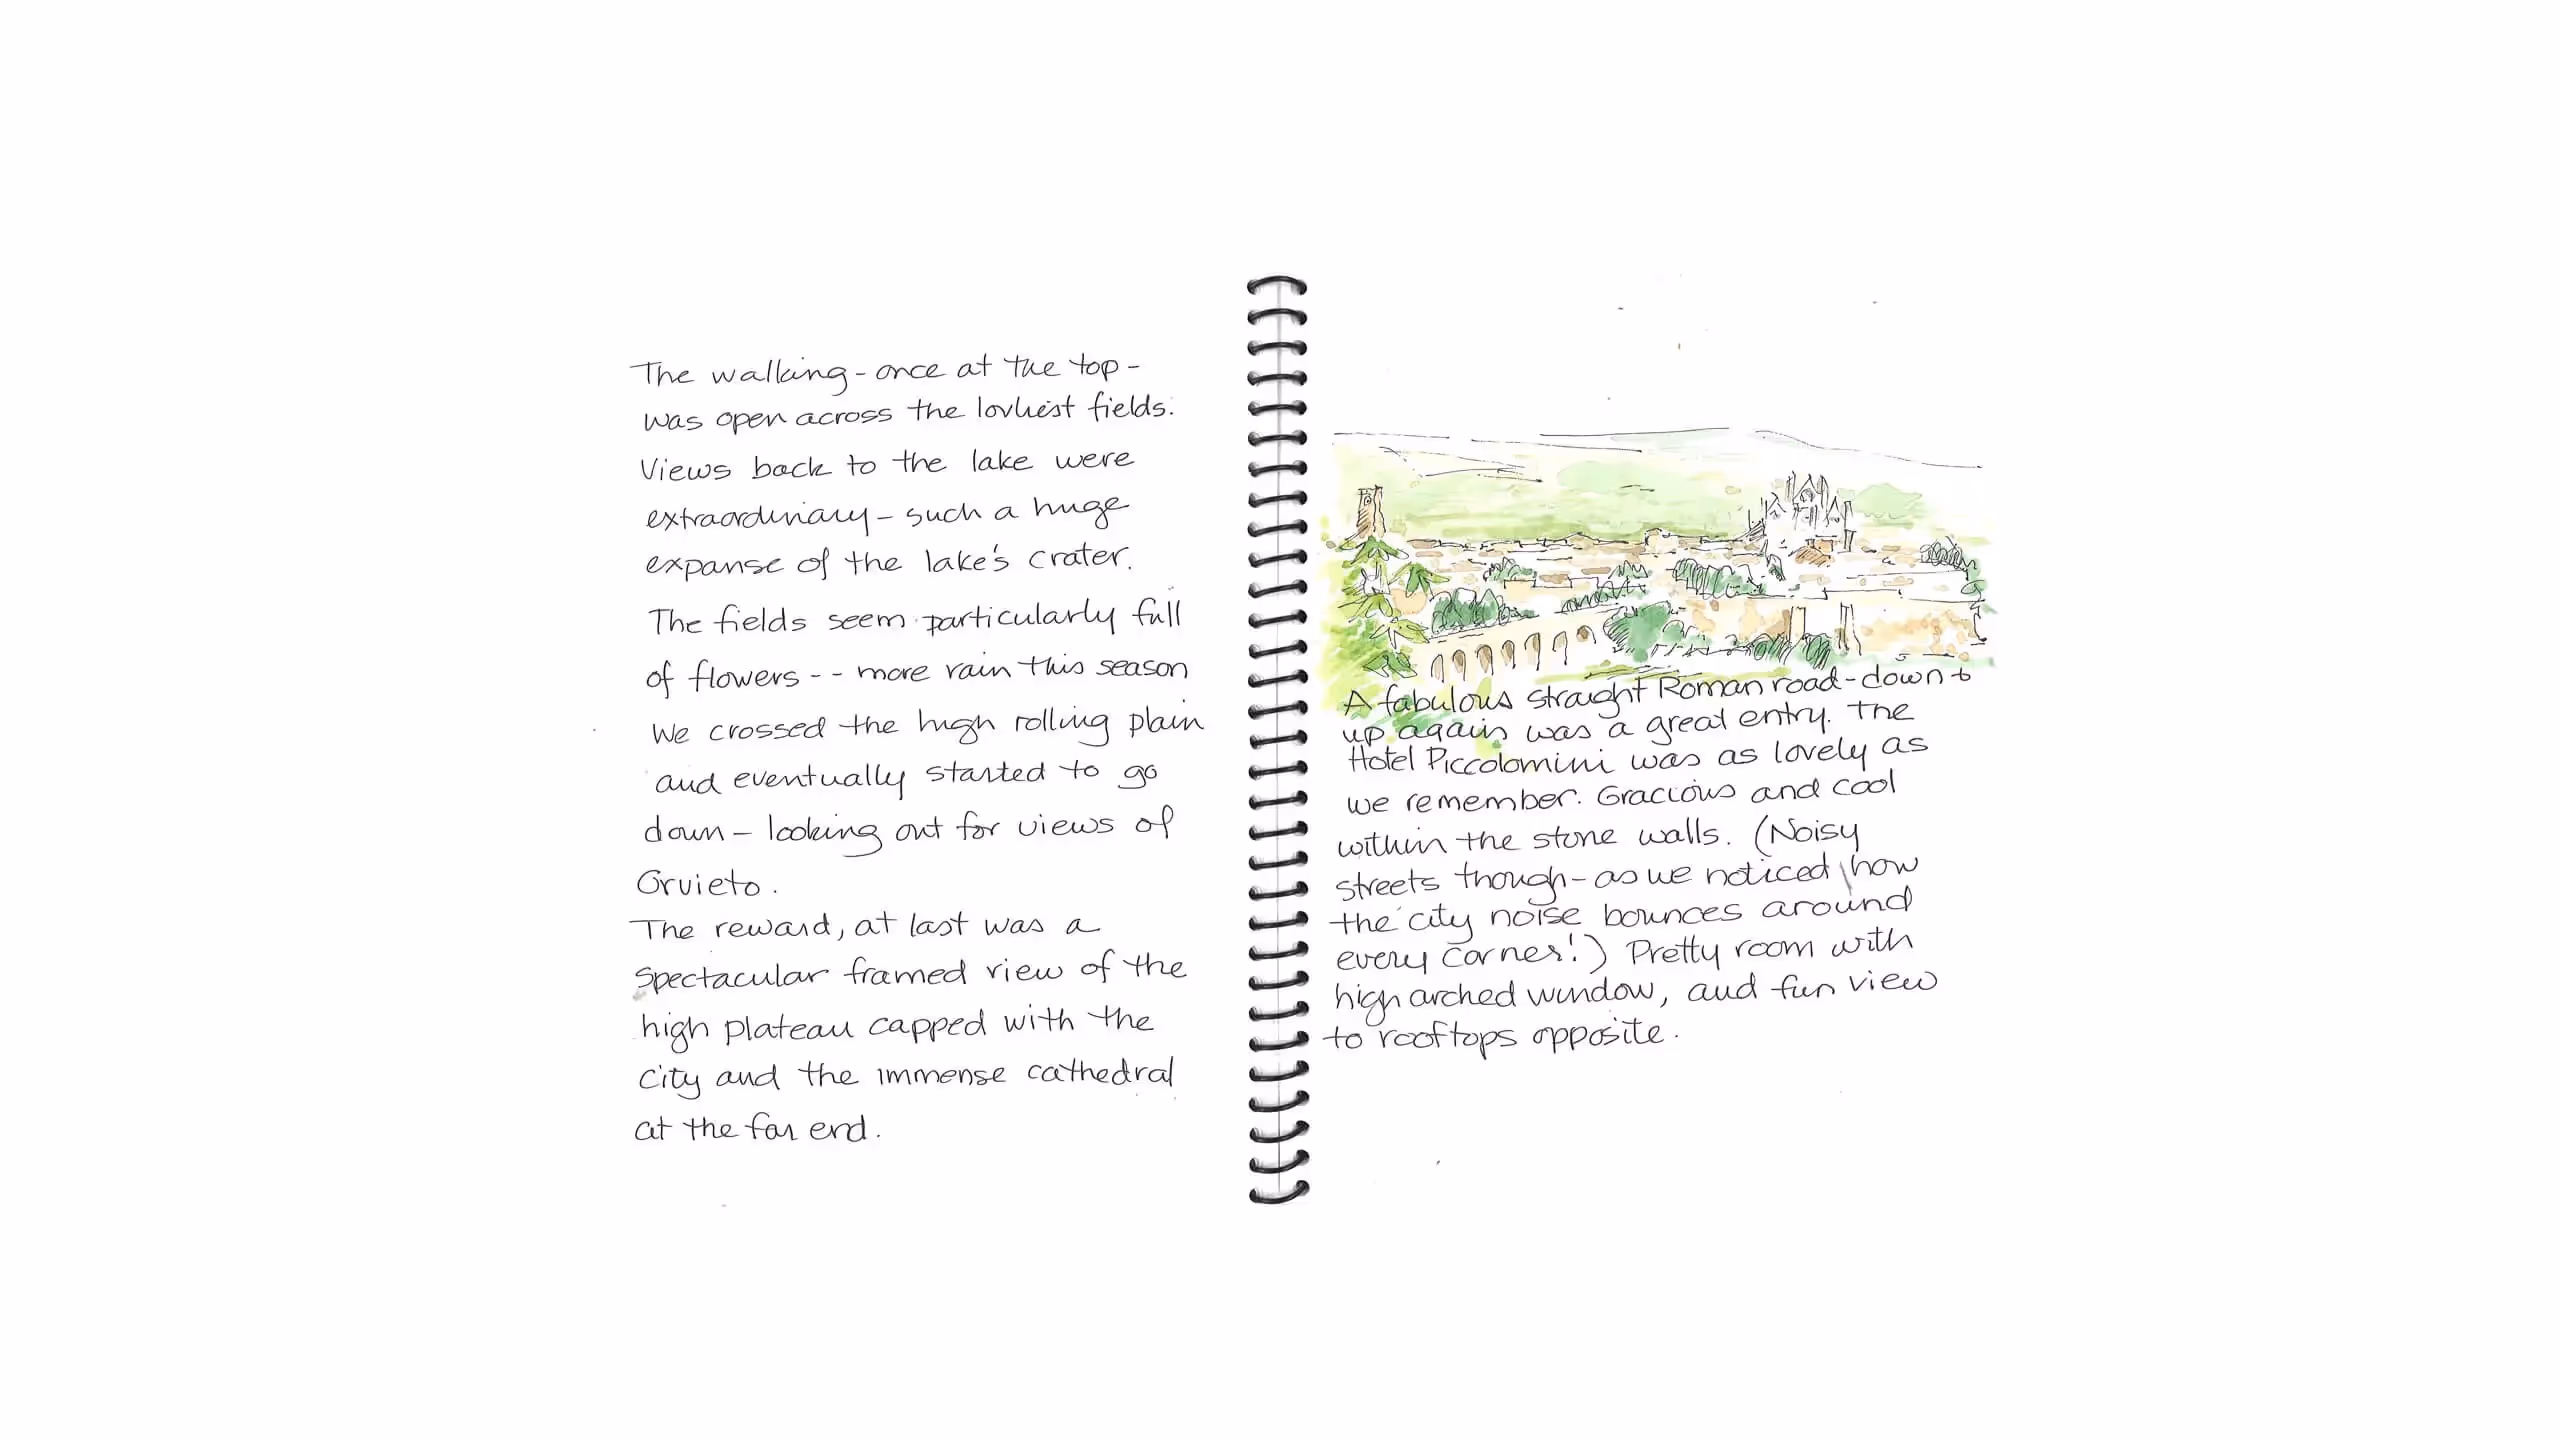 The walking - once at the top -
was open across the lovliest fields.
Views back to the lake were
extraordinary - such a huge
expanse of the lake's crater.
The fields seem particularly full
of flowers - - more rain this season
We crossed the high rolling plain
and eventually started to go
down - looking out for views of
Orvieto.
The reward, at last was a
spectacular framed view of the
high plateau capped with the
city and the immense cathedral
at the far end.
A fabulous straight Roman road - down +
up again was a great entry. The
Hotel Piccolomini was as lovely as
we remember. Gracious and cool
within the stone walls. (Noisy
streets though - as we noticed how
the city noise bounces around
every corner!) Pretty room with
high arched window, and fun view
to rooftops opposite.